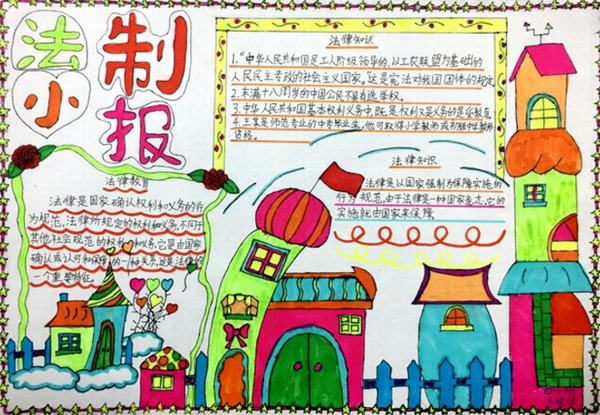 法制
小报
法律知识
1."中华人民共和国是工人阶级领导的,以工农联盟为基础的
人民民主专政的社会主义国家,"这是宪法对我国国体的规定
2.未满十八周岁的中国公民不具有选举权。
3.中华人民共和国基本权利义务中,既是权利又是义务的是受教育
4.王某是师范专业的中专毕业生,他可取得小学教师或初级中学教师
资格。
法律教育
法律是国家确认权利和义务的行
为规范,法律所规定的权利和义务,不同于
其他社会规范的权利和义务,它是由国家
确认或认可和保障的一种关系,这是法律的
一个重要特征。
法律知识
法律是以国家强制为保障实施的
行为规范,由于法律是一种国家意志,它的
实施就由国家来保障